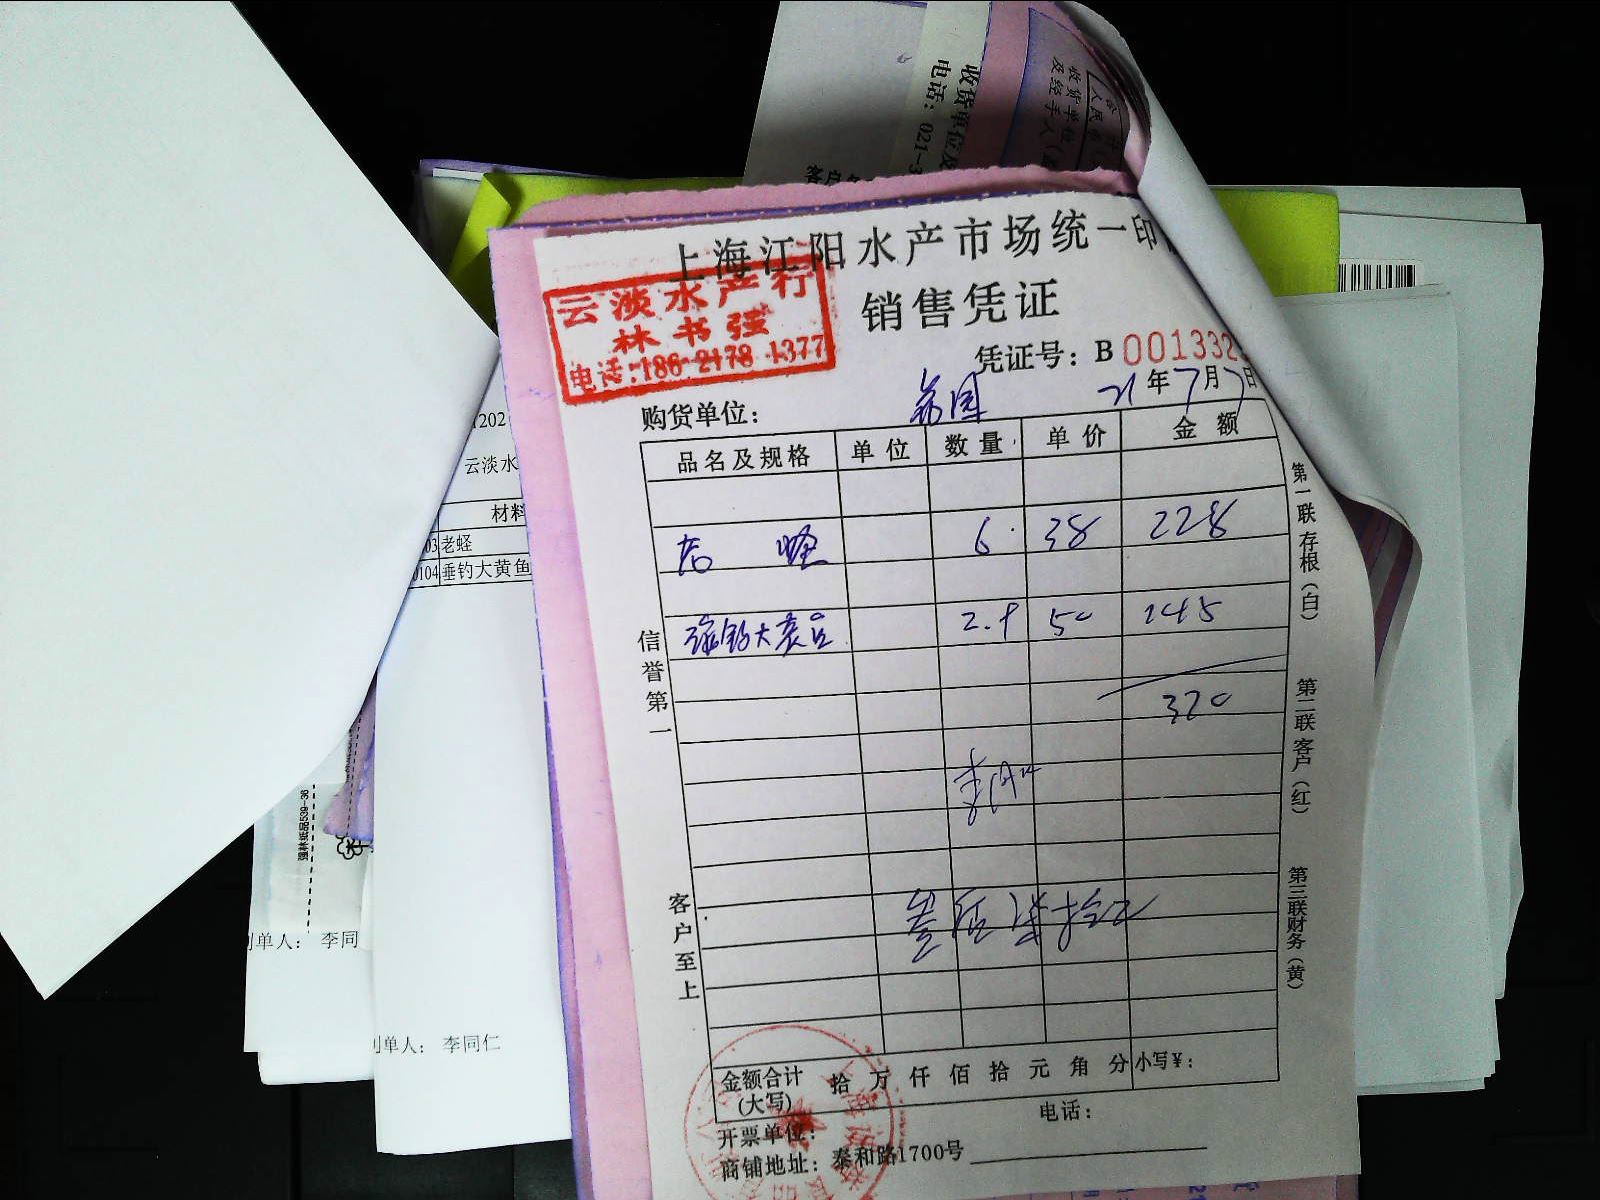 收货单位及
电话：021-3
收货单位
及经手人
人民
上海江阳水产市场统一印
销售凭证
云淡水产行
林书强
电话:186 2178 1377
凭证号：B 001332
购货单位：
21年7月7日
品名及规格 单位 数量 单价 金额
老 蛏 6 38 228
大 2.9 50 145
370
叁佰柒拾元
信誉第一
客户至上
第一联存根（白）
第二联客户（红）
第三联财务（黄）
金额合计
(大写)
拾 万 仟 佰 拾 元 角 分 小写¥：
电话：
开票单位：
商铺地址：泰和路1700号
202
云淡水
材料
03 老蛏
0104 垂钓大黄鱼
制单人： 李同
制单人： 李同仁